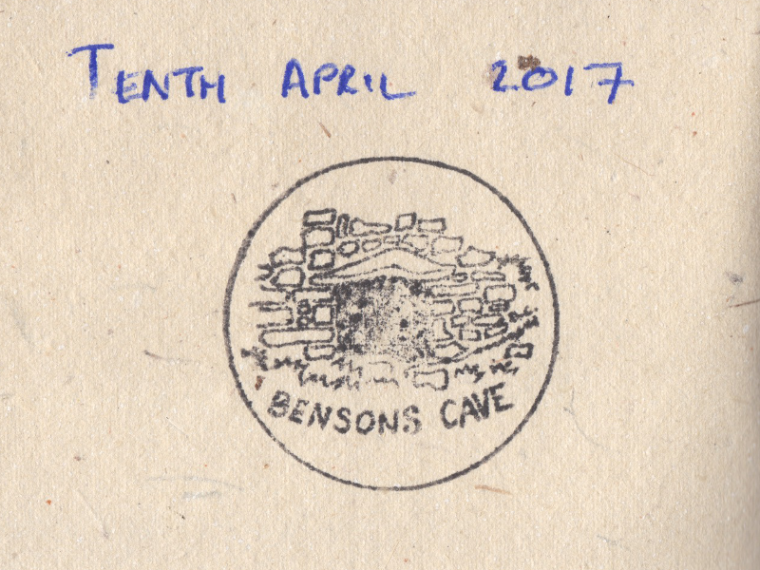 TENTH APRIL 2017
BENSONS CAVE